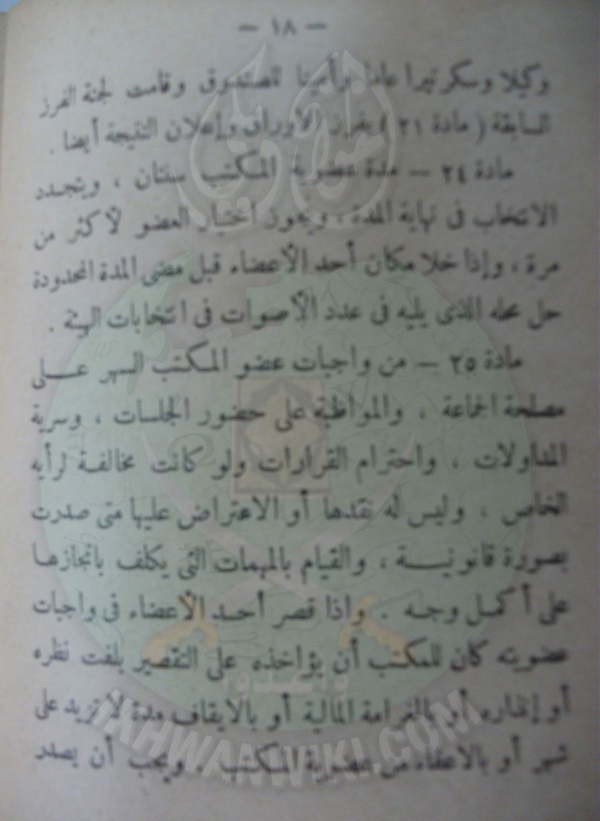 — ١٨ —
وكيلا وسكرتيرا عاما وأمينا للصندوق وقامت لجنة الفرز
السابقة ( مادة ٢١ ) بفرز الأوراق وإعلان النتيجة أيضا .
مادة ٢٤ — مدة عضوية المكتب سنتان ، ويتجدد
الانتخاب فى نهاية المدة ، ويجوز اختيار العضو لأكثر من
مرة ، وإذا خلا مكان أحد الأعضاء قبل مضى المدة المحدودة
حل محله الذى يليه فى عدد الأصوات فى انتخابات الهيئة .
مادة ٢٥ — من واجبات عضو المكتب السهر على
مصلحة الجماعة ، والمواظبة على حضور الجلسات ، وسرية
المداولات ، واحترام القرارات ولو كانت مخالفة لرأيه
الخاص ، وليس له نقدها أو الاعتراض عليها متى صدرت
بصورة قانونية ، والقيام بالمهمات التى يكلف بانجازها
على أكمل وجه . واذا قصر أحد الأعضاء فى واجبات
عضويته كان للمكتب أن يؤاخذه على التقصير بلفت نظره
أو إنذاره أو بالغرامة المالية أو بالايقاف مدة لا تزيد على
شهر أو بالاعفاء من عضوية المكتب . ويجب أن يصدر
وأعدوا
IKHWANWIKI.COM